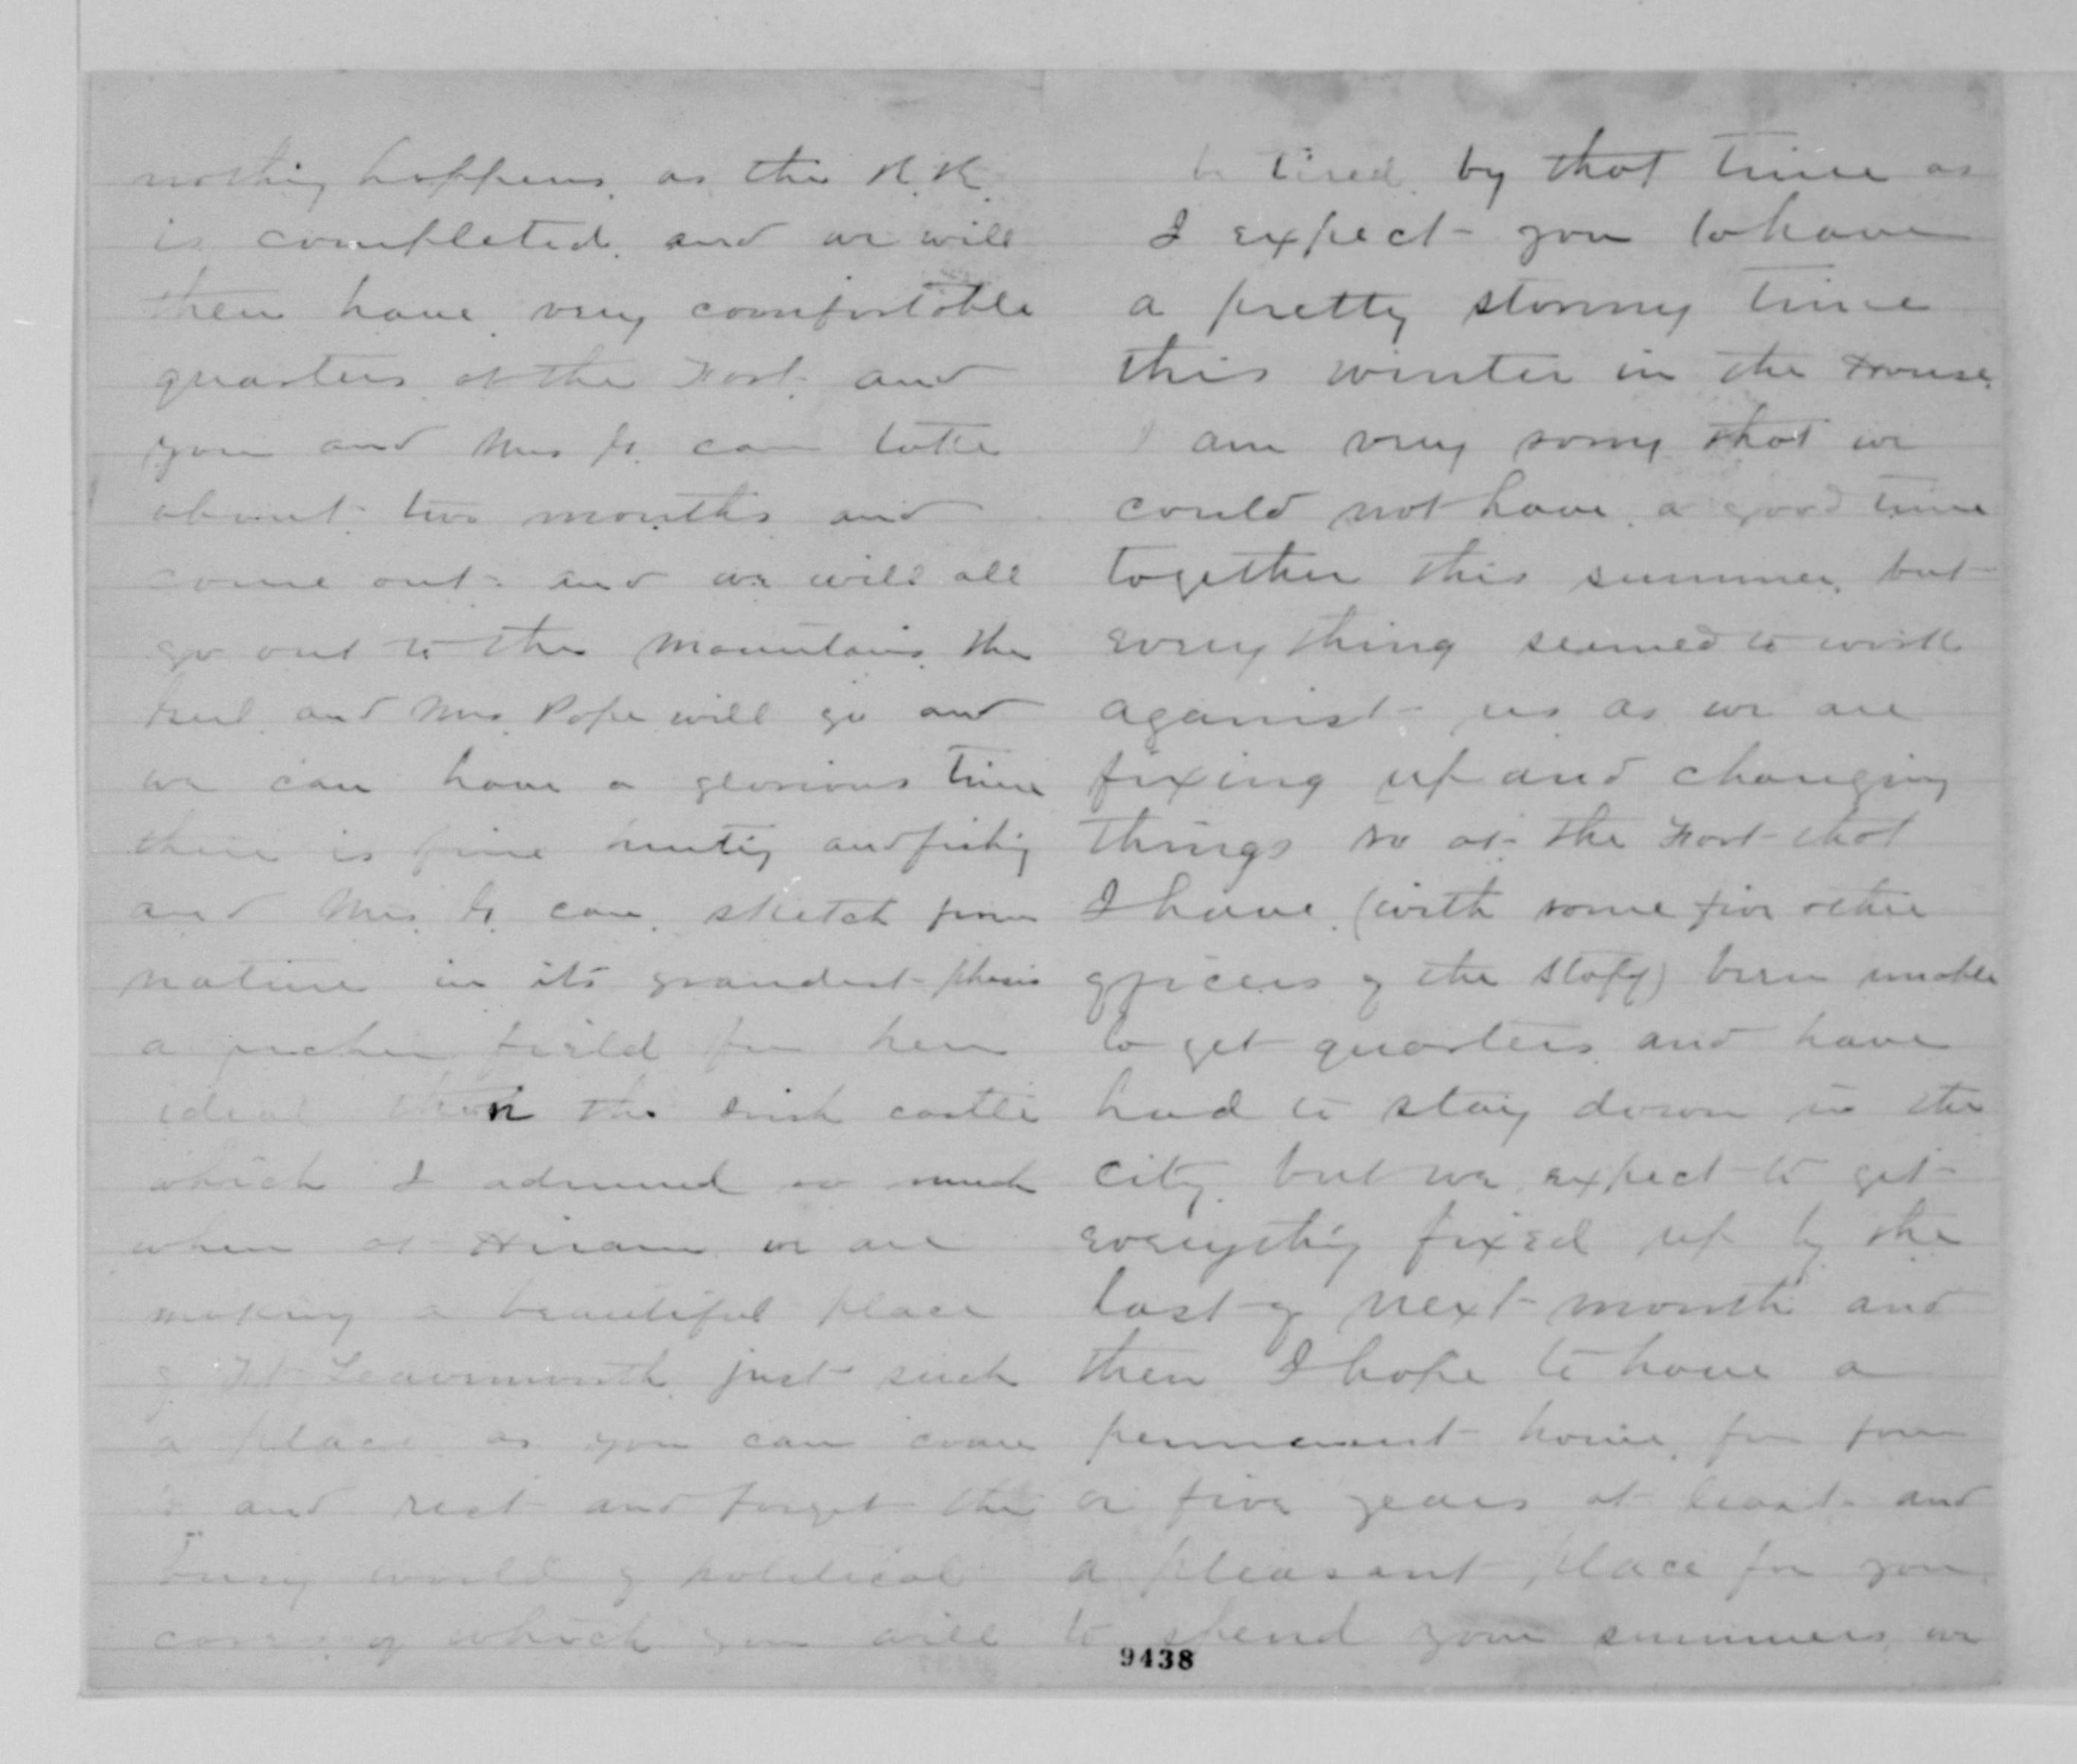 nothing happens, as the R.R.
is completed, and we will
then have very comfortable
quarters at the Fort, and
you and Mrs G. can take
about two months and
come out and we will all
go out to the mountains, the
Genl. and Mrs. Pope will go and
we can have a glorious time
there is fine hunting and fishing
and Mrs. G. can sketch from
nature in its grandest
a richer field for her
ideal than the Irish castle
which I admired so much
when at Hiram, we are
making a beautiful place
of Ft Leavenworth, just such
a place as you can come
to and rest and forget the
busy world of political
cares, of which you will
be tired, by that time as
I expect you to have
a pretty stormy time
this winter in the House.
I am very sorry that we
could not have a good time
together this summer, but
everything seemed to work
against us as we are
fixing up and changing
things so at the Fort that
I have (with some five other
officers of the Staff) been unable
to get quarters and have
had to stay down in the
city, but we expect to get
everything fixed up by the
last of next month and
then I hope to have a
permanent home, for four
or five years at least and
a pleasant place for you
to spend your summers, we
9438